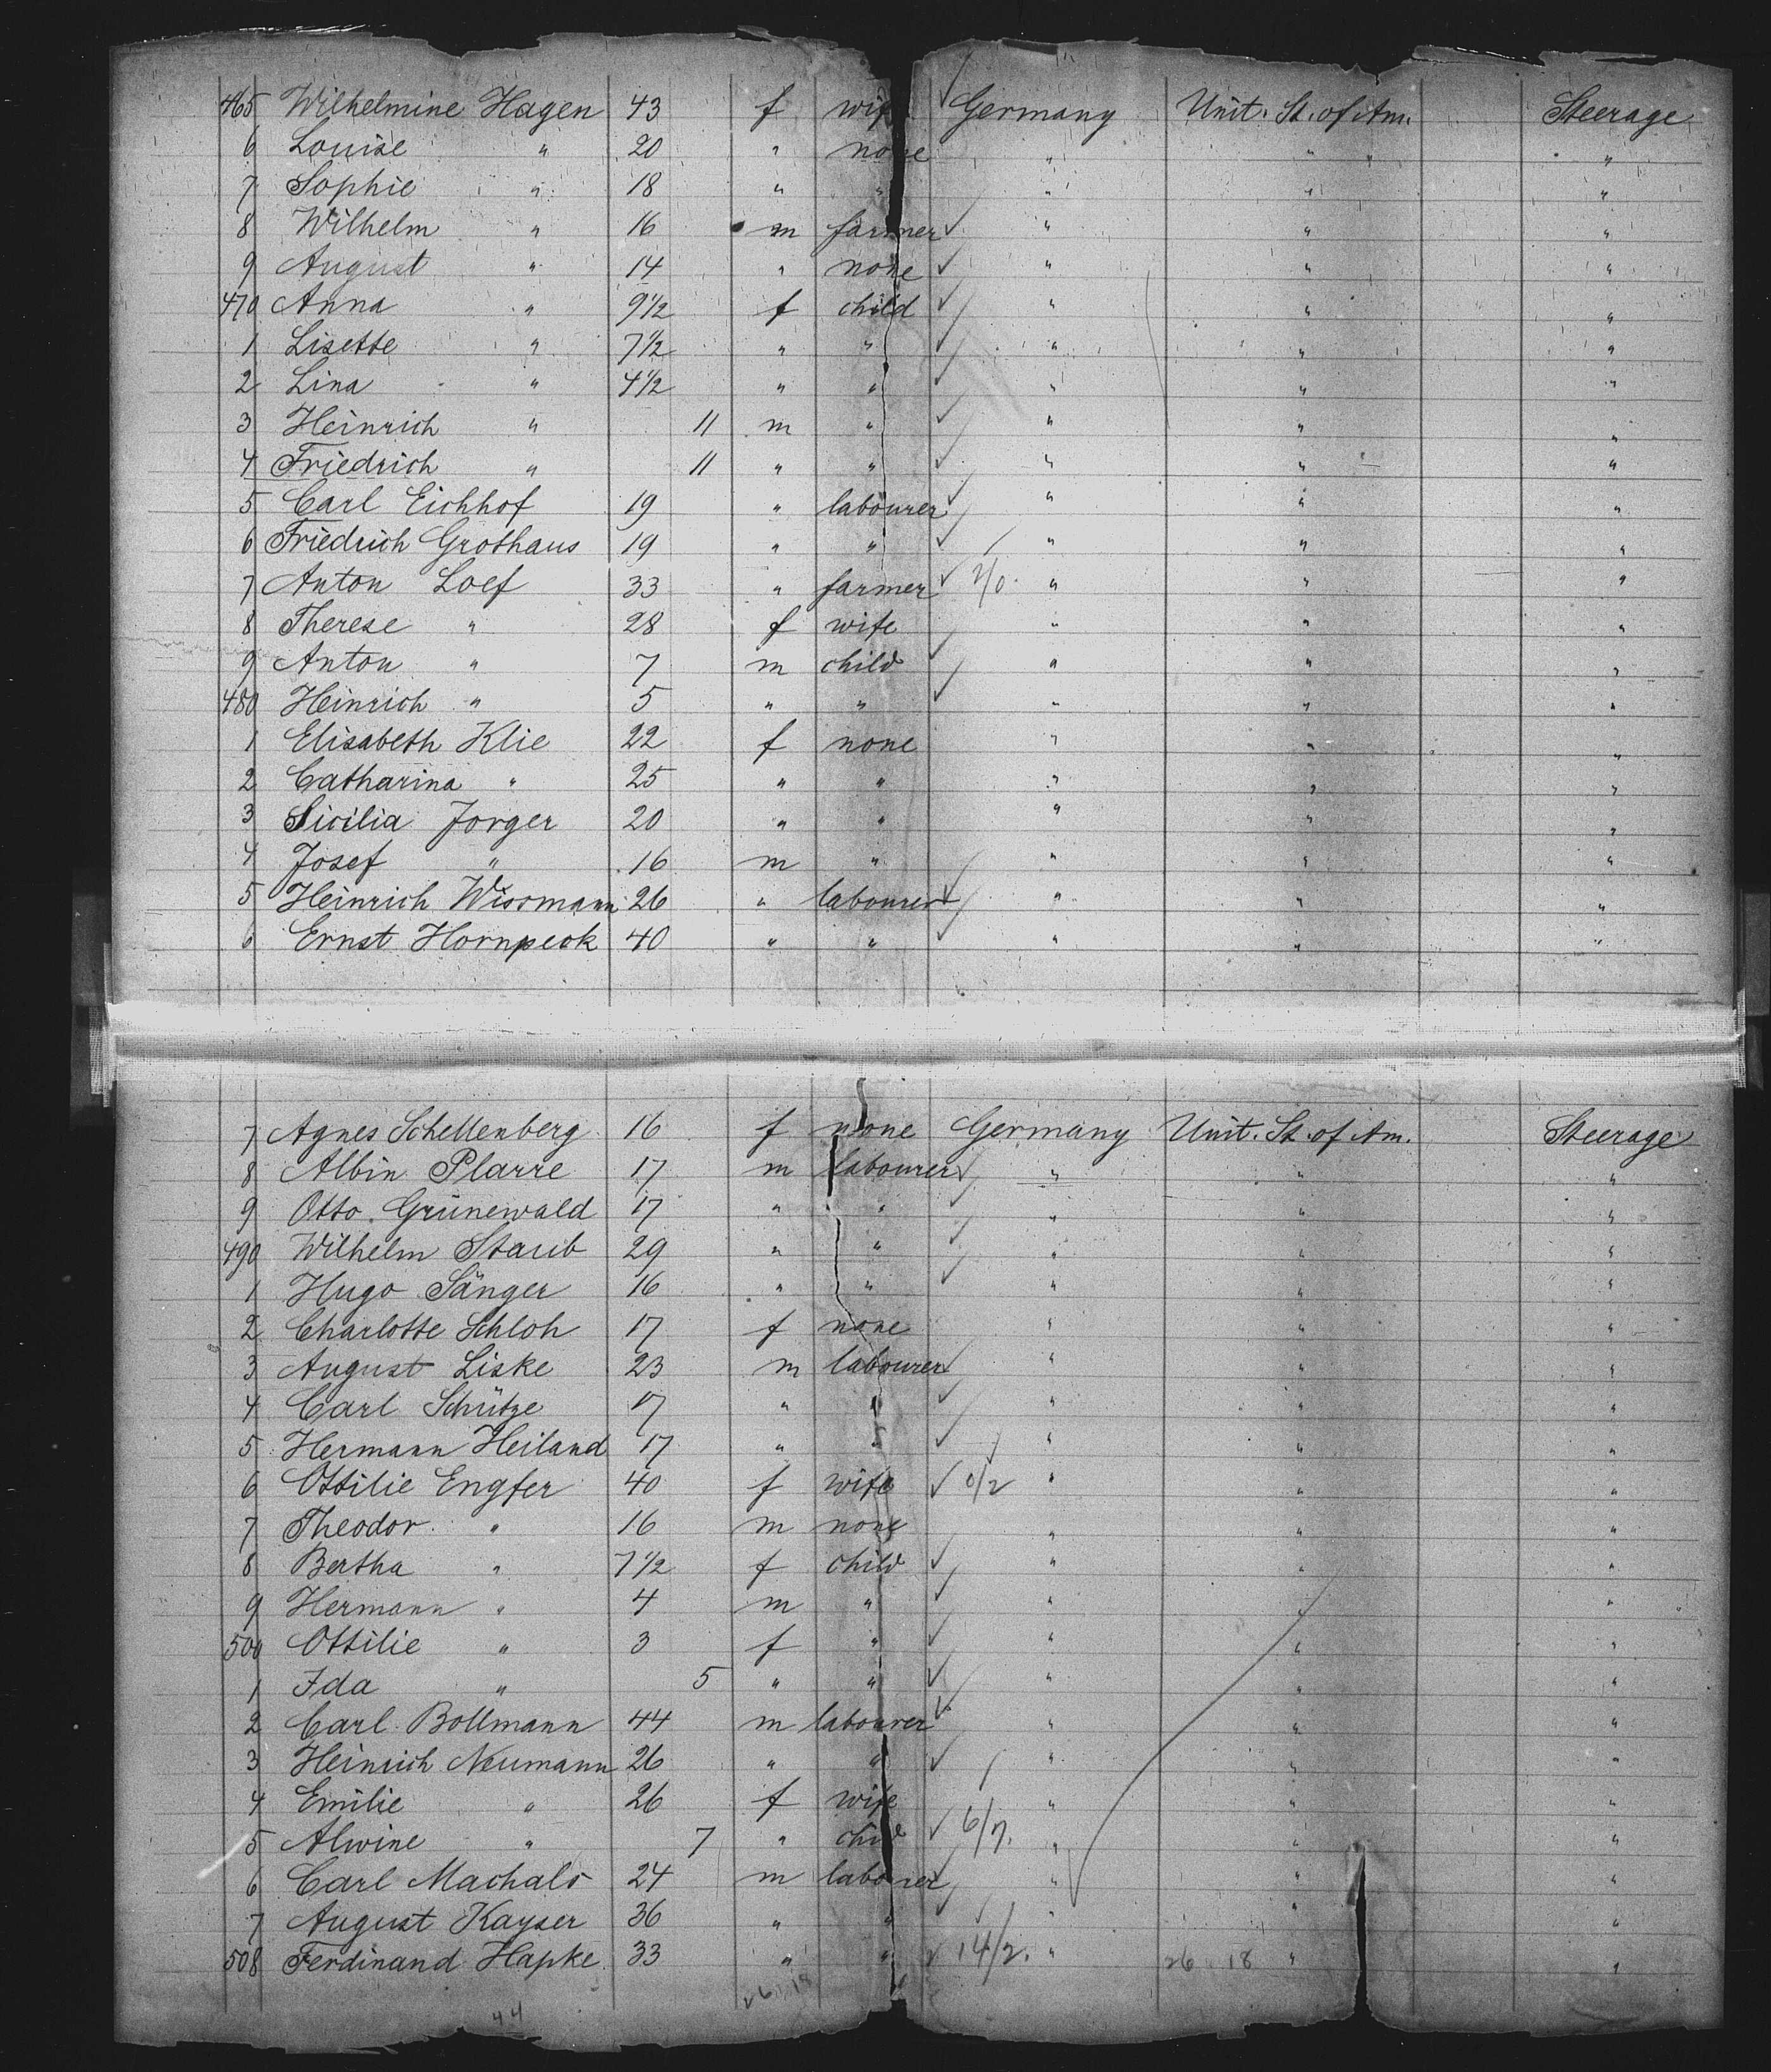 465 Wilhelmine Hagen 43 f wife Germany Unit. St. of Am. Steerage
6 Louise " 20 " none " " "
7 Sophie " 18 " " " " "
8 Wilhelm " 16 m farmer " " "
9 August " 14 " none " " "
470 Anna " 9 1/2 f child " " "
1 Lisette " 7 1/2 " " " " "
2 Lina " 4 1/2 " " " " "
3 Heinrich " 11 m " " " "
4 Friedrich " 11 " " " " "
5 Carl Eichhof 19 " labourer " " "
6 Friedrich Grothaus 19 " " " " "
7 Anton Loef 33 " farmer 2/0. " " "
8 Therese " 28 f wife " " "
9 Anton " 7 m child " " "
480 Heinrich " 5 " " " " "
1 Elisabeth Klie 22 f none " " "
2 Catharina " 25 " " " " "
3 Sicilia Jorger 20 " " " " "
4 Josef " 16 m " " " "
5 Heinrich Wissmann 26 " labourer " " "
6 Ernst Hornpeck 40 " " " " "
7 Agnes Schellenberg 16 f none Germany Unit. St. of Am. Steerage
8 Albin Plarre 17 m labourer " " "
9 Otto Grünewald 17 " " " " "
490 Wilhelm Staub 29 " " " " "
1 Hugo Sänger 16 " " " " "
2 Charlotte Schloh 17 f none " " "
3 August Liske 23 m labourer " " "
4 Carl Schütze 17 " " " " "
5 Hermann Heiland 17 " " " " "
6 Ottilie Engfer 40 f wife 0/2 " " "
7 Theodor " 16 m none " " "
8 Bertha " 7 1/2 f child " " "
9 Hermann " 4 m " " " "
500 Ottilie " 3 f " " " "
1 Ida " 5 " " " " "
2 Carl Bollmann 44 m labourer " " "
3 Heinrich Neumann 26 " " " " "
4 Emilie " 26 f wife " " "
5 Alwine " 7 " child 6/7. " " "
6 Carl Machals 24 m labourer " " "
7 August Kayser 36 " " " " "
508 Ferdinand Hapke 33 " " 14/2. " 26 18 " "
44